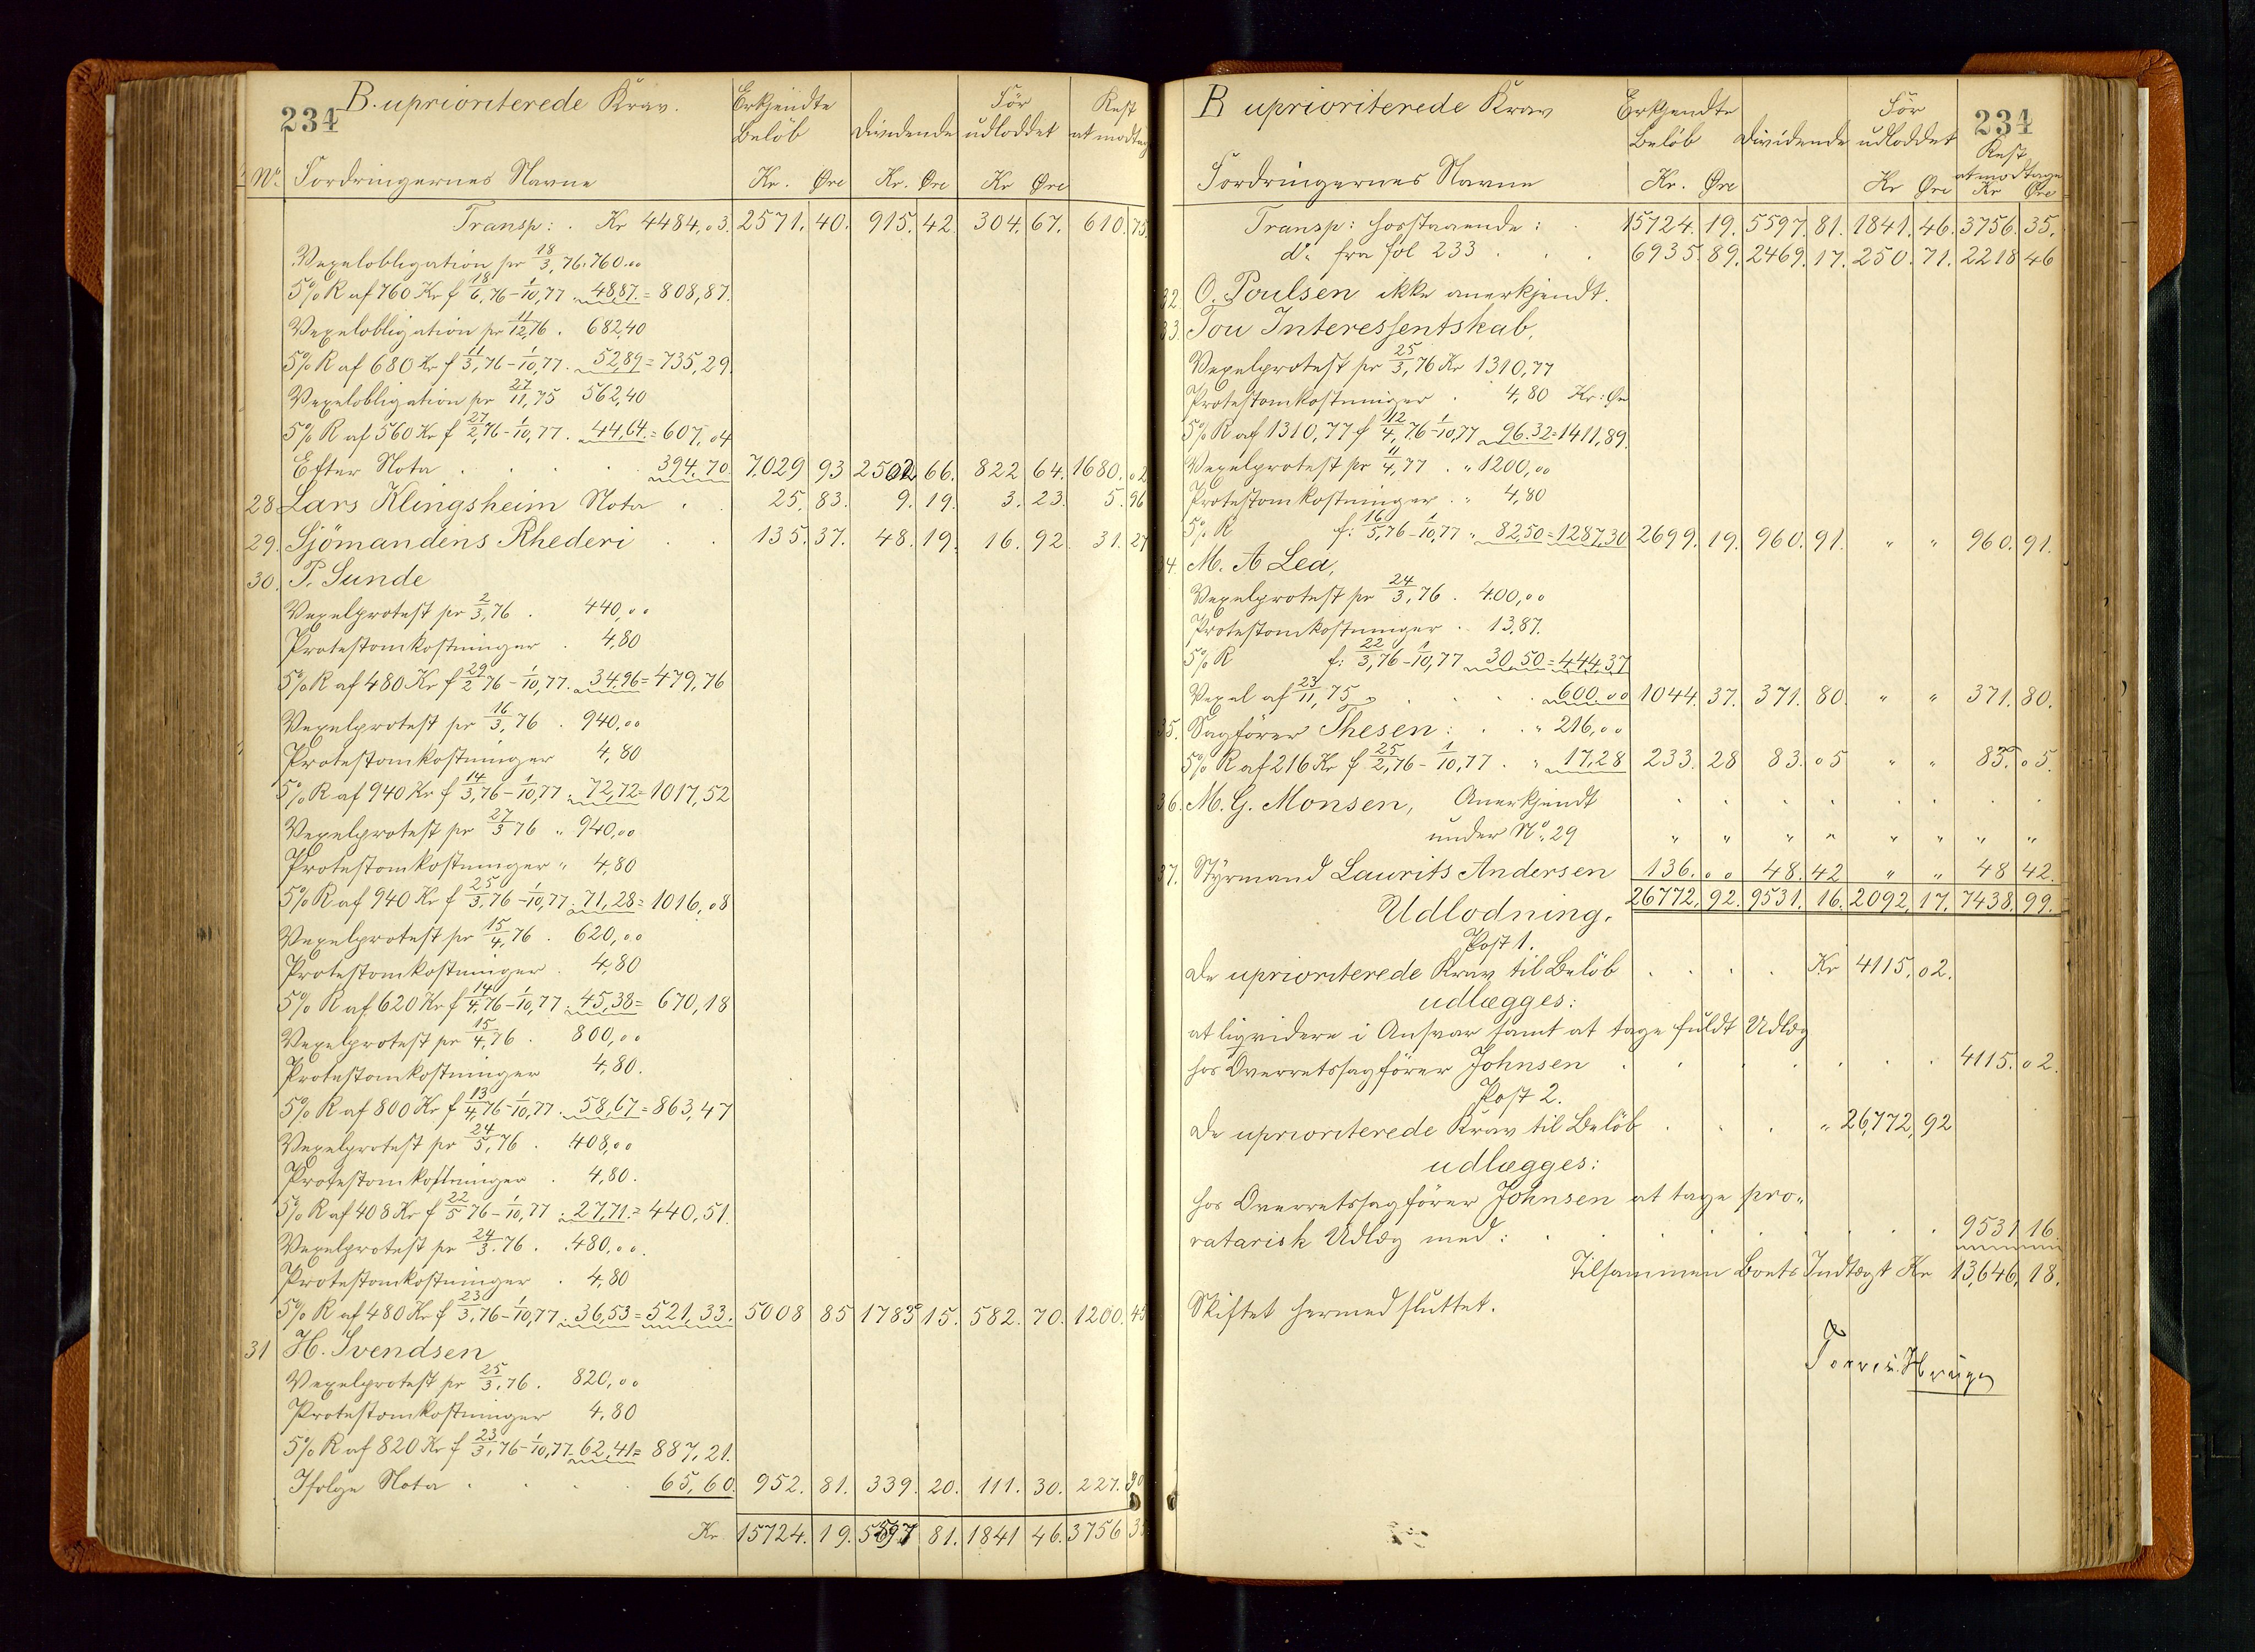 234
B. uprioriterede Krav.
Erkjendte Beløb
Dividende
Før udloddet
Rest at modtage
No. Fordringernes Navne
Kr. Øre Kr. Øre Kr Øre
Transp: . Kr 4484,03. 2571. 40. 915. 42. 304. 67. 610. 75.
Vexelobligation pr 18/3, 76. 760.00
5% R af 760 Kr f 18/6, 76 - 1/10, 77. 48,87. = 808,87.
Vexelobligation pr 11/12 76 . 682,40
5% R af 680 Kr f 11/3, 76 - 1/10, 77. 52,89 = 735,29.
Vexelobligation pr 27/11, 75 562,40
5% R af 560 Kr f 27/2, 76 - 1/10, 77. 44,64. = 607,04
Efter Nota . . . . . 394.70. 7029 93 2502 66. 822 64. 1680. 02
28. Lars Klingsheim Nota . . 25. 83. 9. 19. 3. 23. 5. 96
29. Sjömandens Rhederi . . 135. 37. 48. 19. 16. 92. 31. 27
30. P. Sunde
Vexelprotest pr 2/3, 76 . 440,00
Protestomkostninger . 4,80
5% R af 480 Kr f 29/2 76 - 1/10, 77. 34.96 = 479,76
Vexelprotest pr 16/3, 76 . 940,00
Protestomkostninger 4,80
5% R af 940 Kr f 14/3, 76 - 1/10, 77. 72,72 = 1017,52
Vexelprotest pr 27/3 76 " 940,00
Protestomkostninger " 4,80
5% R af 940 Kr f 25/3, 76 - 1/10, 77. 71,28 = 1016,08
Vexelprotest pr 15/4, 76 . 620,00
Protestomkostninger . 4,80
5% R af 620 Kr f 14/4, 76 - 1/10, 77. 45,38 = 670,18
Vexelprotest pr 15/4, 76 . 800,00
Protestomkostninger 4,80.
5% R af 800 Kr f 13/4, 76 - 1/10, 77. 58,67 = 863,47
Vexelprotest pr 24/5, 76 . 408,00
Protestomkostninger . 4,80.
5% R af 408 Kr f 22/5 76 - 1/10, 77. 27,71. = 440,51.
Vexelprotest pr 24/3. 76 . . 480,00.
Protestomkostninger . 4,80
5% R af 480 Kr f 23/3, 76 - 1/10, 77. 36,53 = 521,33. 5008 85 1783 15. 582. 70. 1200. 45
31 H. Svendsen
Vexelprotest pr 25/3, 76 . 820,00
Protestomkostninger 4,80
5% R af 820 Kr f 23/3, 76 - 1/10, 77. 62,41 = 887,21.
Ifølge Nota . . . . 65,60. 952. 81. 339. 20. 111. 30. 227. 90
Kr. 15724. 19. 5597 81. 1841 46. 3756 35
B uprioriterede Krav
Erkjendte Beløb
Dividende
Før udloddet
234
Rest at modtage
Fordringernes Navne
Kr. Øre Kr Øre Kr Øre
Transp: hosstaaende : . 15724. 19. 5597. 81. 1841. 46. 3756. 35.
do. fra fol 233 . . . 6935. 89. 2469. 17. 250. 71. 2218 46
32. O. Poulsen ikke anerkjendt.
33. Tou Interessentskab,
Vexelprotest pr 25/3, 76 Kr 1310,77
Protestomkostninger . 4,80 Kr: Øre
5% R af 1310,77 f 12/4, 76 - 1/10, 77 96.32 = 1411,89.
Vexelprotest pr 11/4, 77 . " 1200,00
Protestomkostninger . " 4,80
5% R f: 16/5, 76 - 1/10, 77 " 82,50 = 1287,30 2699. 19. 960. 91. " " 960. 91.
34. M. A Lea,
Vexelprotest pr 24/3, 76 . 400,00
Protestomkostninger . 13,87.
5% R f: 22/3, 76 - 1/10, 77 30,50 = 444,37
Vexel af 23/11, 75 . . . . 600.00 1044. 37. 371. 80. " " 371. 80.
35. Sagförer Thesen : . . " 216,00
5% R af 216 Kr f 25/2, 76 - 1/10, 77 . " 17,28 233. 28 83. 05 " " 83. 05.
36. M. G. Monsen, Anerkjendt
under No. 29 " " " " " " " "
37. Styrmand Laurits Andersen 136. 00 48. 42 " " 48 42.
26772. 92. 9531. 16. 2092. 17. 7438. 99.
Udlodning.
Post 1.
De uprioriterede Krav til Beløb . . . . Kr 4115. 02.
udlægges:
at liqvidere i Ansvar samt at tage fuldt Udlæg
hos Overretssagförer Johnsen . . . . . . . 4115. 02.
Post 2.
De uprioriterede Krav til Beløb . . . " 26,772, 92
udlægges:
hos Overretssagförer Johnsen at tage pro-
ratarisk Udlæg med : . . . . . . . 9531 16.
Tilsammen Boets Indtægt Kr 13,646, 18.
Skiftet hermed sluttet.